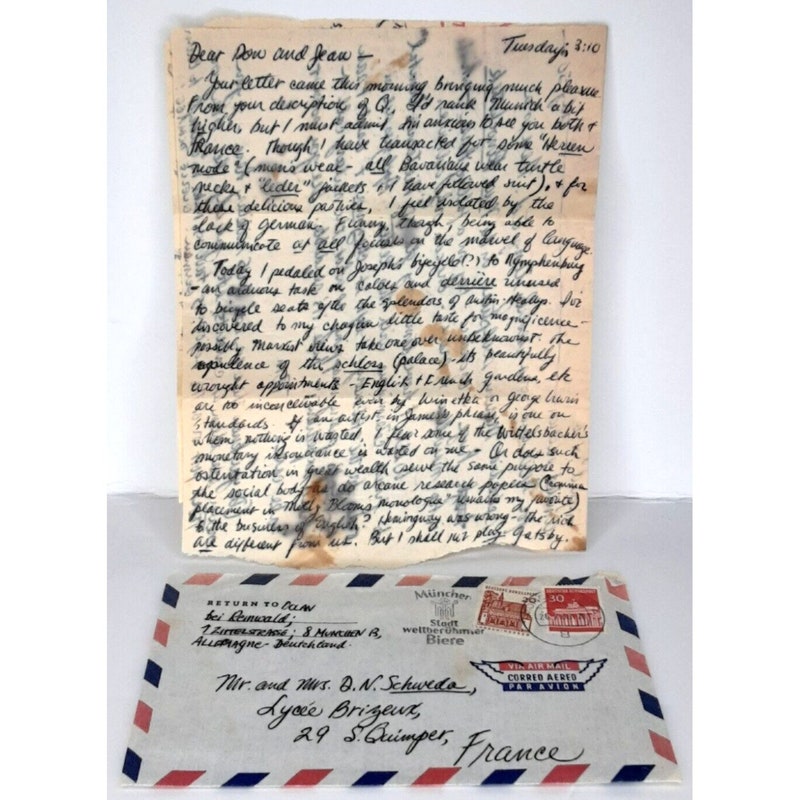 Dear Don and Jean — Tuesday, 3:10
Your letter came this morning bringing much pleasure
From your description of Q., I'd rank Munich a bit
higher, but I must admit, I'm anxious to see you both +
France. Though I have transacted for some "Herren
mode" (men's wear - all Bavarians wear turtle
necks + "leder" jackets + I have followed suit), + for
these delicious pastries, I feel isolated by the
lack of german. Funny, though, being able to
communicate at all focuses on the marvel of language.
Today I pedaled on Joseph's bicycle(?) to Nymphenburg
- an arduous task on calves and derrière unused
to bicycle seats after the splendors of Austin-Healeys. I've
discovered to my chagrin little taste for magnificence -
possibly Marxist views take one over unbeknownst. The
opulence of the schloss (palace) - its beautifully
wrought appointments - English + French gardens, etc
are too inconceivable even by Winnetka or George
standards. If an artist, in James's phrase, is one on
whom nothing is wasted, I fear some of the Wittelsbacher's
monetary is wasted on me - Or does such
ostentation in great wealth serve the same purpose to
the social body as do arcane research papers (Comma
placement in Molly Bloom's monologue remains my favorite)
to the business of English? Hemingway was wrong - the rich
are different from us. But I shall not play Gatsby.
RETURN TO DOLAN
bei Reinwald;
7 ZITTELSTRASSE; 8 MÜNCHEN 13,
ALLEMAGNE - Deutchland.
München
Stadt
weltberühmter
Biere
DEUTSCHE BUNDESPOST
20
30
VIA AIR MAIL
CORREO AEREO
PAR AVION
Mr. and Mrs. D. N. Schweda,
Lycée Brizeux,
29 S. Quimper,
France